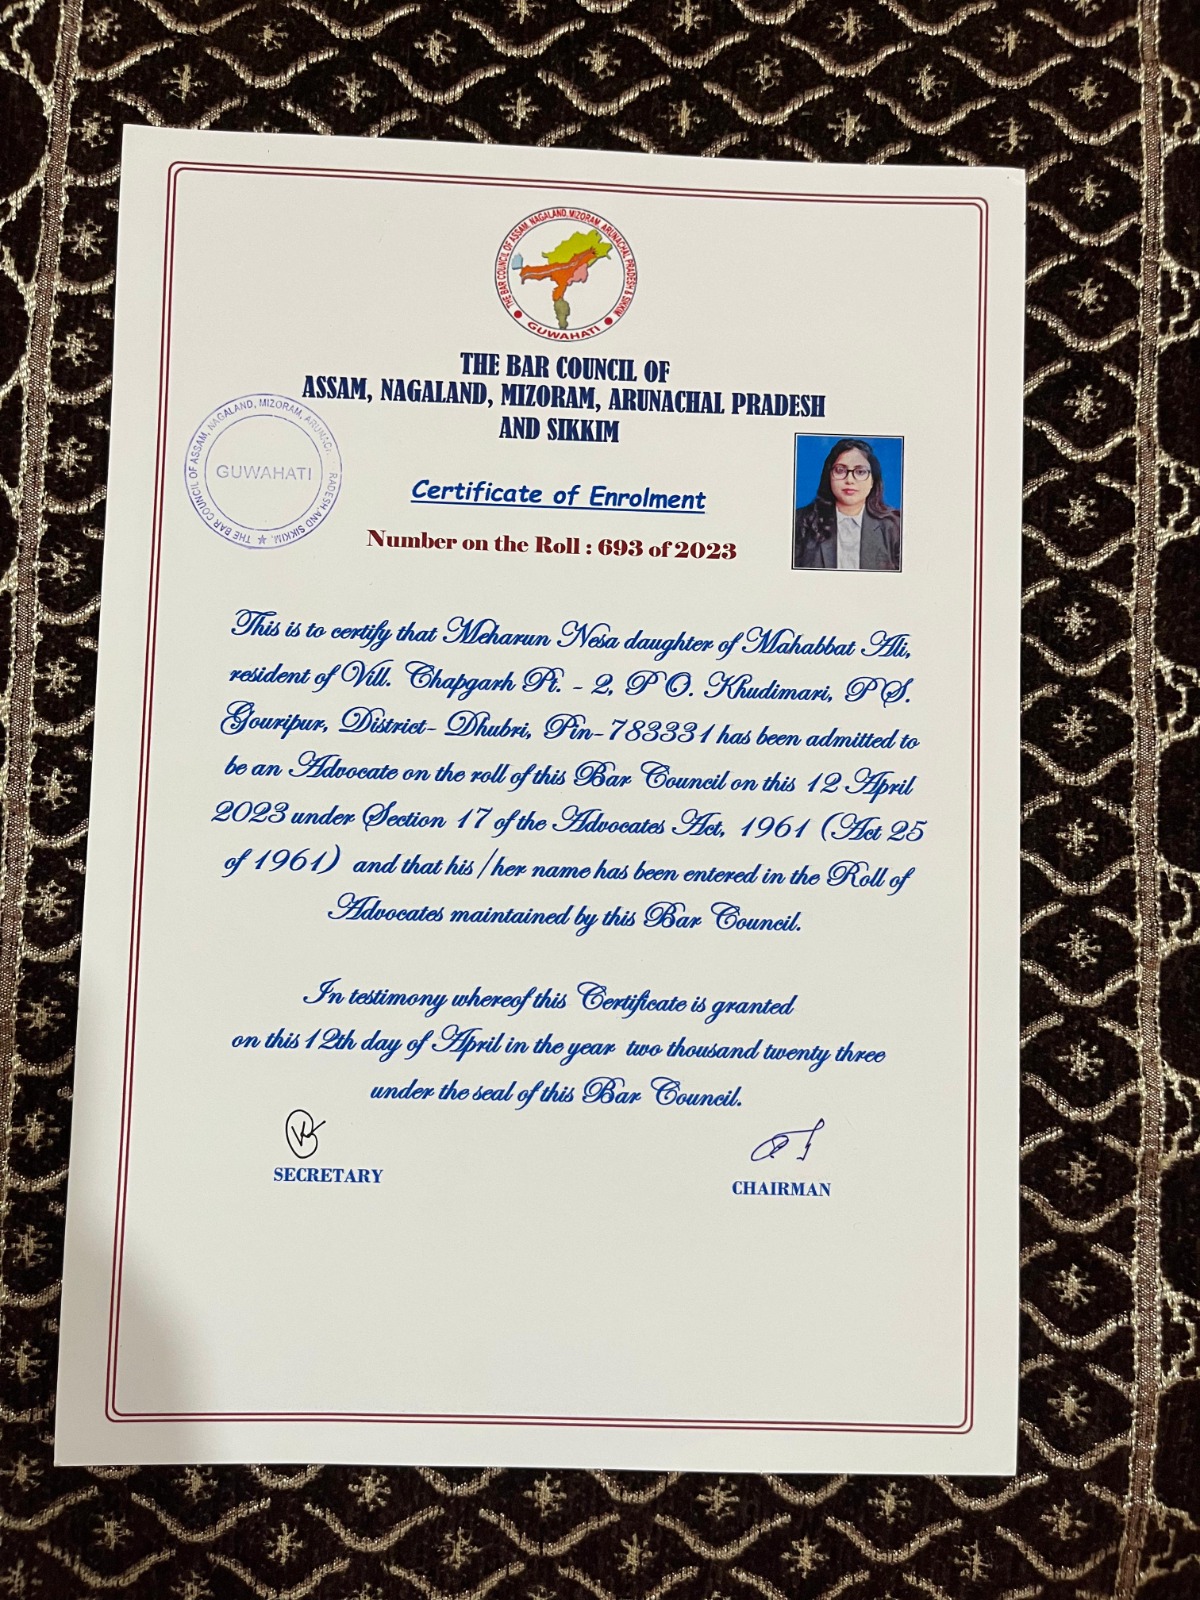 THE BAR COUNCIL OF ASSAM, NAGALAND, MIZORAM, ARUNACHAL PRADESH & SIKKIM
GUWAHATI
THE BAR COUNCIL OF
ASSAM, NAGALAND, MIZORAM, ARUNACHAL PRADESH
AND SIKKIM
THE BAR COUNCIL OF ASSAM, NAGALAND, MIZORAM, AND SIKKIM.
GUWAHATI
Certificate of Enrolment
Number on the Roll : 693 of 2023
This is to certify that Meharun Nesa daughter of Mahabbat Ali,
resident of Vill. Chapgarh Pt. - 2, P O. Khudimari, P S.
Gouripur, District- Dhubri, Pin-783331 has been admitted to
be an Advocate on the roll of this Bar Council on this 12 April
2023 under Section 17 of the Advocates Act, 1961 (Act 25
of 1961) and that his /her name has been entered in the Roll of
Advocates maintained by this Bar Council.
In testimony whereof this Certificate is granted
on this 12th day of April in the year two thousand twenty three
under the seal of this Bar Council.
SECRETARY
CHAIRMAN